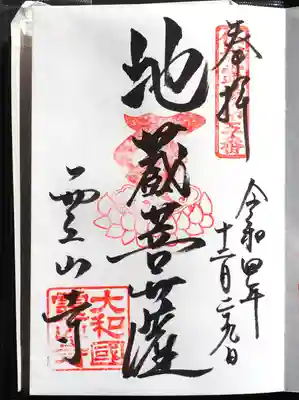 奉拝
令和四年
十二月二九日
地蔵菩薩
霊山寺
大和國